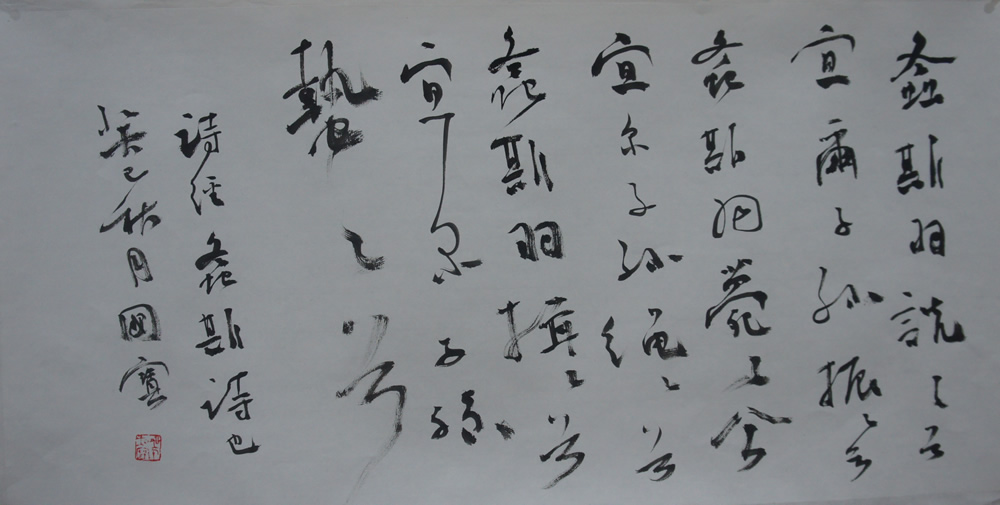 螽斯羽詵々兮
宜爾子孫振々兮
螽斯羽薨々兮
宜尔子孫繩々兮
螽斯羽揖々兮
宜尔子孫
蟄々兮
詩經螽斯詩也
癸巳秋月國寶